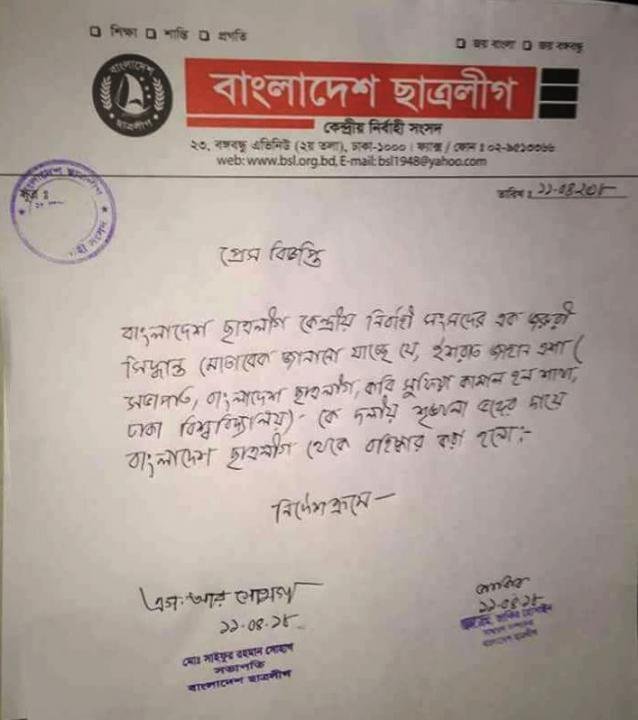 শিক্ষা শান্তি প্রগতি
জয় বাংলা জয় বঙ্গবন্ধু
বাংলাদেশ
ছাত্রলীগ
বাংলাদেশ ছাত্রলীগ
কেন্দ্রীয় নির্বাহী সংসদ
২৩, বঙ্গবন্ধু এভিনিউ (২য় তলা), ঢাকা-১০০০। ফ্যাক্স / ফোন : ০২-৯৫১০৩৬৬
web: www.bsl.org.bd, E-mail: bsl1948@yahoo.com
সূত্র :
তারিখ : ১১-০৪-২০১৮
প্রেস বিজ্ঞপ্তি
বাংলাদেশ ছাত্রলীগ কেন্দ্রীয় নির্বাহী সংসদের এক জরুরী
সিদ্ধান্ত মোতাবেক জানানো যাচ্ছে যে, ইশরাত জাহান এশা (
সভাপতি, বাংলাদেশ ছাত্রলীগ, কবি সুফিয়া কামাল হল শাখা,
ঢাকা বিশ্ববিদ্যালয়)- কে দলীয় শৃঙ্খলা ভঙ্গের দায়ে
বাংলাদেশ ছাত্রলীগ থেকে বহিষ্কার করা হলো।-
নির্দেশক্রমে-
এস. আর সোহাগ
১১-০৪-১৮
মোঃ সাইফুর রহমান সোহাগ
সভাপতি
বাংলাদেশ ছাত্রলীগ
জাকির
১১-০৪-১৮
এস.এম. জাকির হোসাইন
সাধারণ সম্পাদক
বাংলাদেশ ছাত্রলীগ